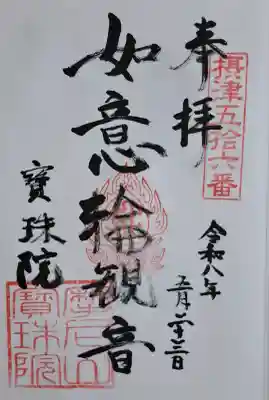 摂津五拾六番
奉拝
令和八年
五月廿三日
如意輪観音
寶珠院
摩尼山
寶珠院